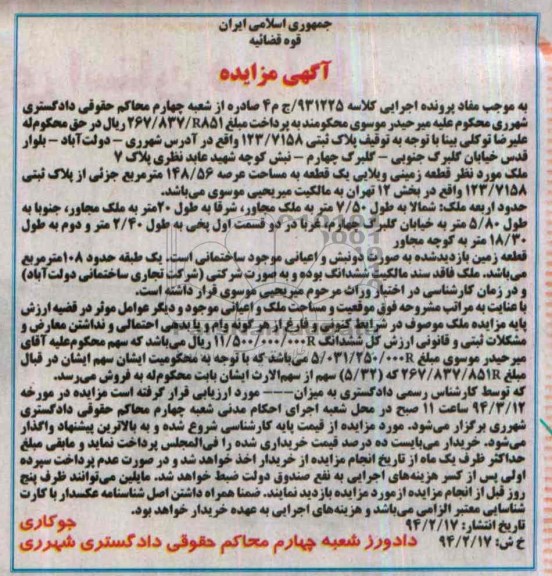 جمهوری اسلامی ایران
قوه قضائیه
آگهی مزایده
به موجب مفاد پرونده اجرایی کلاسه ۹۳۱۲۲۵/ج م۴ صادره از شعبه چهارم محاکم حقوقی دادگستری
شهرری محکوم علیه میرحیدر موسوی محکومند به پرداخت مبلغ ۲۶۷/۸۳۷/R۸۵۱ ریال در حق محکوم‌له
علیرضا توکلی بینا با توجه به توقیف پلاک ثبتی ۱۲۳/۷۱۵۸ واقع در آدرس شهرری – دولت‌آباد – بلوار
قدس خیابان گلبرگ جنوبی – گلبرگ چهارم – نبش کوچه شهید عابد نظری پلاک ۷
ملک مورد نظر قطعه زمینی ویلایی یک قطعه به مساحت عرصه ۱۴۸/۵۶ مترمربع جزئی از پلاک ثبتی
۱۲۳/۷۱۵۸ واقع در بخش ۱۲ تهران به مالکیت میریحیی موسوی می‌باشد.
حدود اربعه ملک: شمالا به طول ۷/۵۰ متر به ملک مجاور، شرقا به طول ۲۰متر به ملک مجاور، جنوبا به
طول ۵/۸۰ متر به خیابان گلبرگ چهارم، غربا در دو قسمت اول پخی به طول ۲/۴۰ متر و دوم به طول
۱۸/۳۰ متر به کوچه مجاور
قطعه زمین بازدیدشده به صورت دونبش و اعیانی موجود ساختمانی است. یک طبقه حدود ۱۰۸مترمربع
می‌باشد. ملک فاقد سند مالکیت ششدانگ بوده و به صورت شرکتی (شرکت تجاری ساختمانی دولت‌آباد)
و در زمان کارشناسی در اختیار وراث مرحوم میریحیی موسوی قرار داشته است.
با عنایت به مراتب مشروحه فوق موقعیت و مساحت ملک و اعیانی موجود و دیگر عوامل موثر در قضیه ارزش
پایه مزایده ملک موصوف در شرایط کنونی و فارغ از هر گونه وام و یا بدهی احتمالی و نداشتن معارض و
مشکلات ثبتی و قانونی ارزش کل ششدانگ ۱۱/۵۰۰/۰۰۰/۰۰۰R ریال می‌باشد که سهم محکوم‌علیه آقای
میرحیدر موسوی مبلغ ۵/۰۳۱/۲۵۰/۰۰۰R می‌باشد که با توجه به محکومیت ایشان سهم ایشان در قبال
مبلغ ۲۶۷/۸۳۷/۸۵۱R که (۵/۳۲) سهم از سهم‌الارث ایشان بابت محکوم‌له به فروش می‌رسد.
که توسط کارشناس رسمی دادگستری به میزان ——— مورد ارزیابی قرار گرفته است مزایده در مورخه
۹۴/۳/۱۲ ساعت ۱۱ صبح در محل شعبه اجرای احکام مدنی شعبه چهارم محاکم حقوقی دادگستری
شهرری برگزار می‌شود. مورد مزایده از قیمت پایه کارشناسی شروع شده و به بالاترین پیشنهاد واگذار
می‌شود. خریدار می‌بایست ده درصد قیمت خریداری شده را فی‌المجلس پرداخت نماید و مابقی مبلغ
حداکثر ظرف یک ماه از تاریخ انجام مزایده از خریدار اخذ خواهد شد و در صورت عدم پرداخت سپرده
اولی پس از کسر هزینه‌های اجرایی به نفع صندوق دولت ضبط خواهد شد. مایلین می‌توانند ظرف پنج
روز قبل از انجام مزایده از مورد مزایده بازدید نمایند. ضمنا همراه داشتن اصل شناسنامه عکسدار یا کارت
شناسایی معتبر الزامی می‌باشد و هزینه‌های اجرایی به عهده خریدار خواهد بود.
تاریخ انتشار: ۹۴/۲/۱۷ جوکاری
خ ش: ۹۴/۲/۱۷ دادورز شعبه چهارم محاکم حقوقی دادگستری شهرری